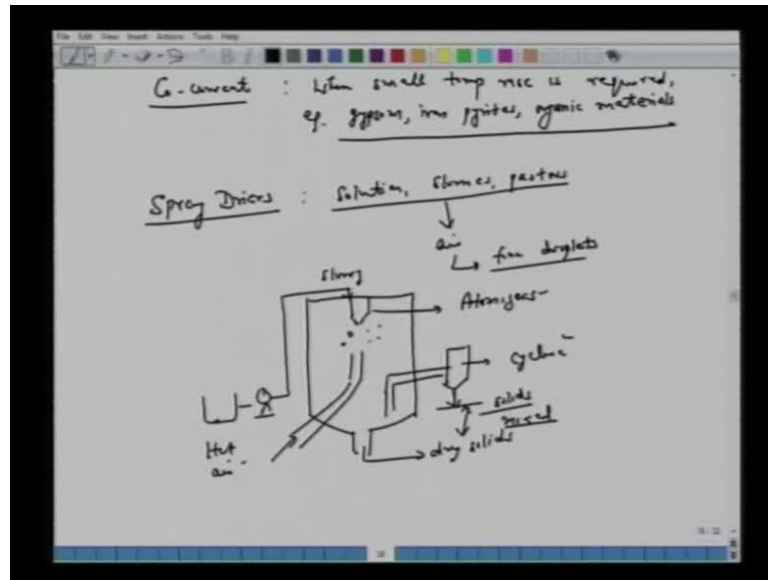 File Edit View Insert Actions Tools Help
Co-current : When small temp rise is required,
eg. gypsum, iron pyrites, organic materials
Spray Driers : Solution, slurries, pastes
air
fine droplets
slurry
Atomizers
cyclone
solids
mixed
dry solids
Hot
air